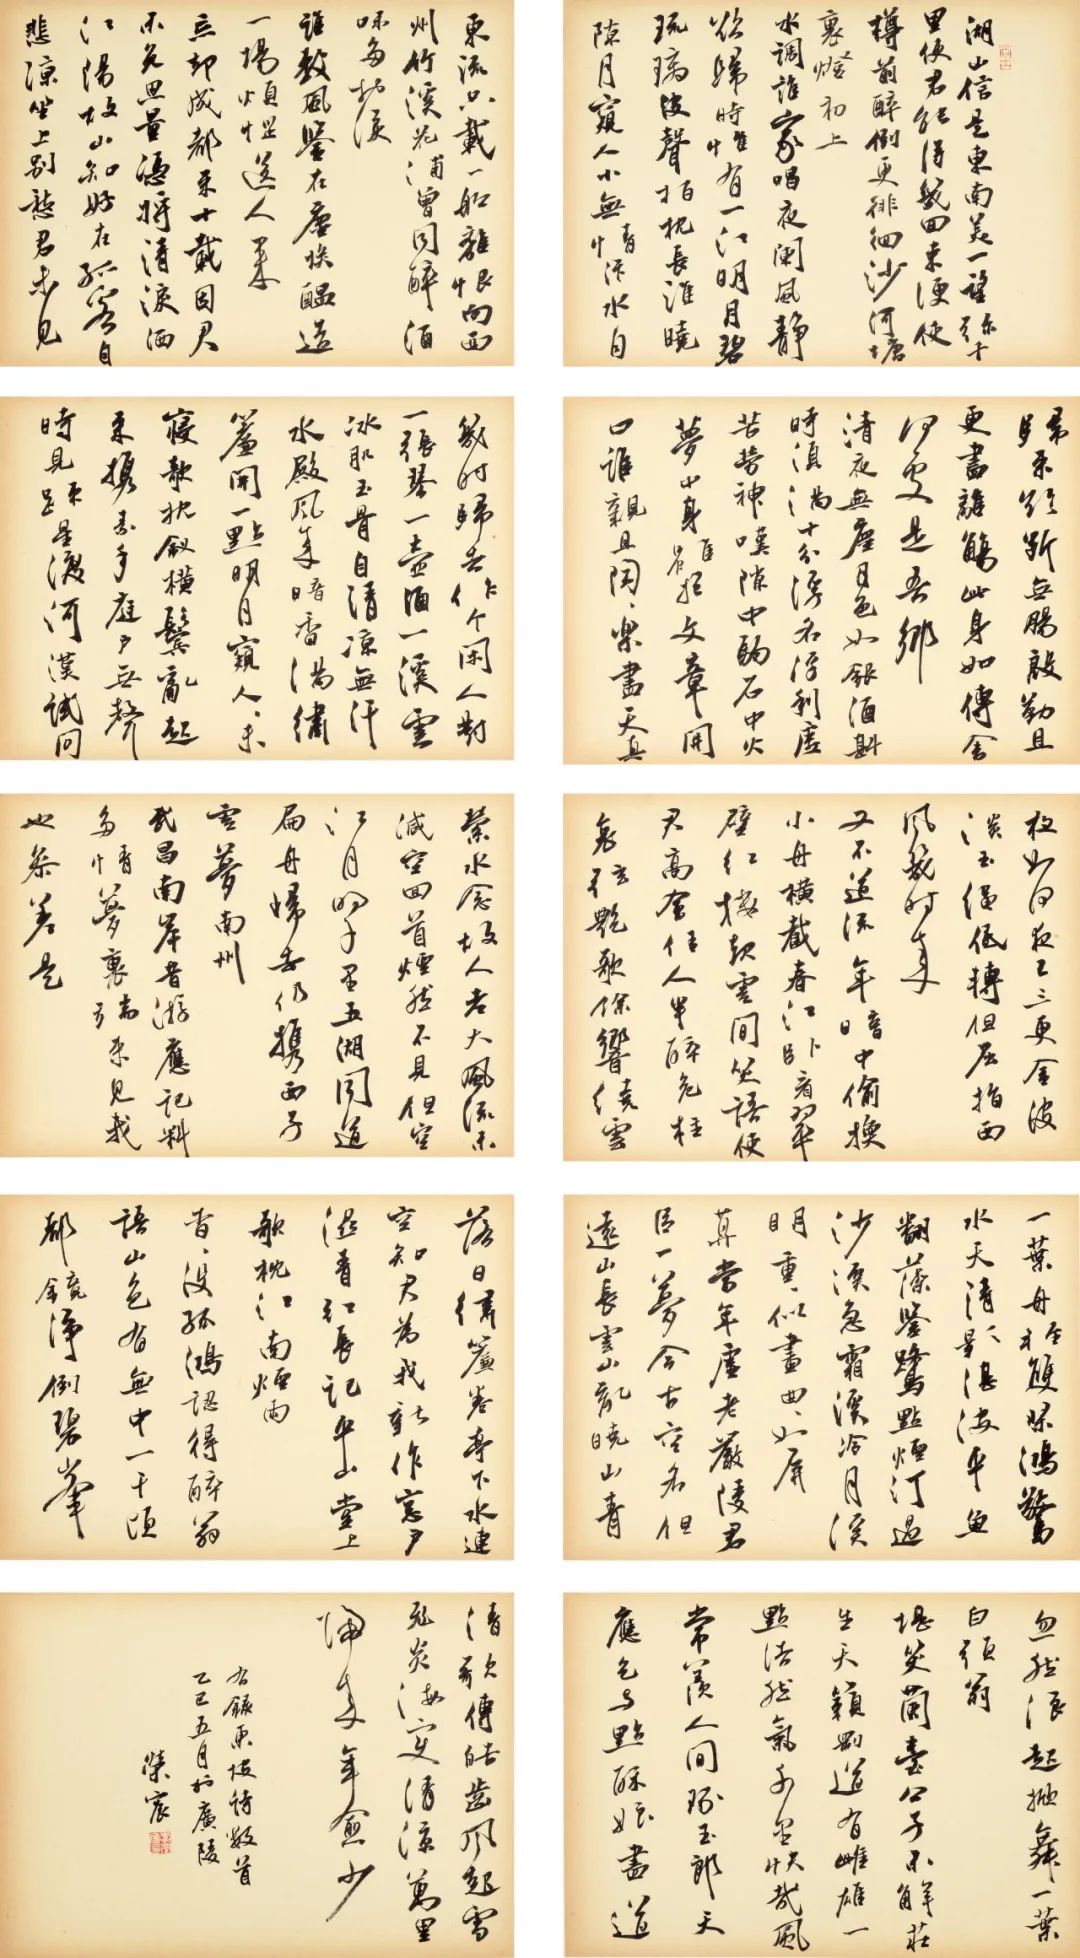 湖山信是東南美一望弥千
里使君能得幾回來便使
樽前醉倒更徘徊沙河塘
裏燈初上
水調誰家唱夜闌風靜
欲歸時惟有一江明月碧
琉璃波聲拍枕長淮曉
隙月窺人小無情汴水自
東流只載一船離恨向西
州竹溪花浦曾同醉酒
味多於淚
誰教風鑒在塵埃醖造
一場煩惱送人來
忘却成都來十載因君
未免思量憑將清淚洒
江陽故山知好在孤客自
悲涼坐上別愁君未見
歸來欲斷無腸殷勤且
更盡離觴此身如傳舍
何處是吾鄉
清夜無塵月色如銀酒斟
時須滿十分浮名浮利虛
苦勞神嘆隙中駒石中火
夢中身雖抱文章開
口誰親且陶陶樂盡天真
幾時歸去作个閑人對
一張琴一壺酒一溪雲
冰肌玉骨自清涼無汗
水殿風來暗香滿繡
簾開一點明月窺人人未
寢欹枕釵橫鬢亂起
來攜素手庭户無聲
時見疏星渡河漢試問
夜如何夜已三更金波
淡玉繩低轉但屈指西
風幾時來
又不道流年暗中偷換
小舟橫截春江卧看翠
壁紅樓起雲間笑語使
君高會佳人半醉危柱
哀弦艷歌餘響繞雲
縈水念故人老大風流未
減空回首煙然不見但空
江月明千里五湖聞道
扁舟歸去仍攜西子
雲夢南州
武昌南岸昔游應記料
多情夢裏端來見我
也參差是
一葉舟輕雙槳鴻驚
水天清影湛波平魚
翻藻鑒鷺點煙汀過
沙溪急霜溪冷月溪
明重重似畫曲曲如屏
算當年虛老嚴陵君
臣一夢今古空名但
遠山長雲山亂曉山青
落日繡簾卷亭下水連
空知君為我新作窗户
濕青紅長記平山堂上
欹枕江南煙雨
杳杳沒孤鴻認得醉翁
語山色有無中一千頃
都鏡淨倒碧峰
忽然浪起掀舞一葉
白頭翁
堪笑蘭臺公子未解莊
生天籟剛道有雌雄一
點浩然氣千里快哉風
常羨人間琢玉郎天
應乞與點酥娘盡道
清歌傳皓齒風起雪
飛炎海變清涼萬里
歸來年愈少
右錄東坡詩數首
乙巳五月於廣陵
榮宸